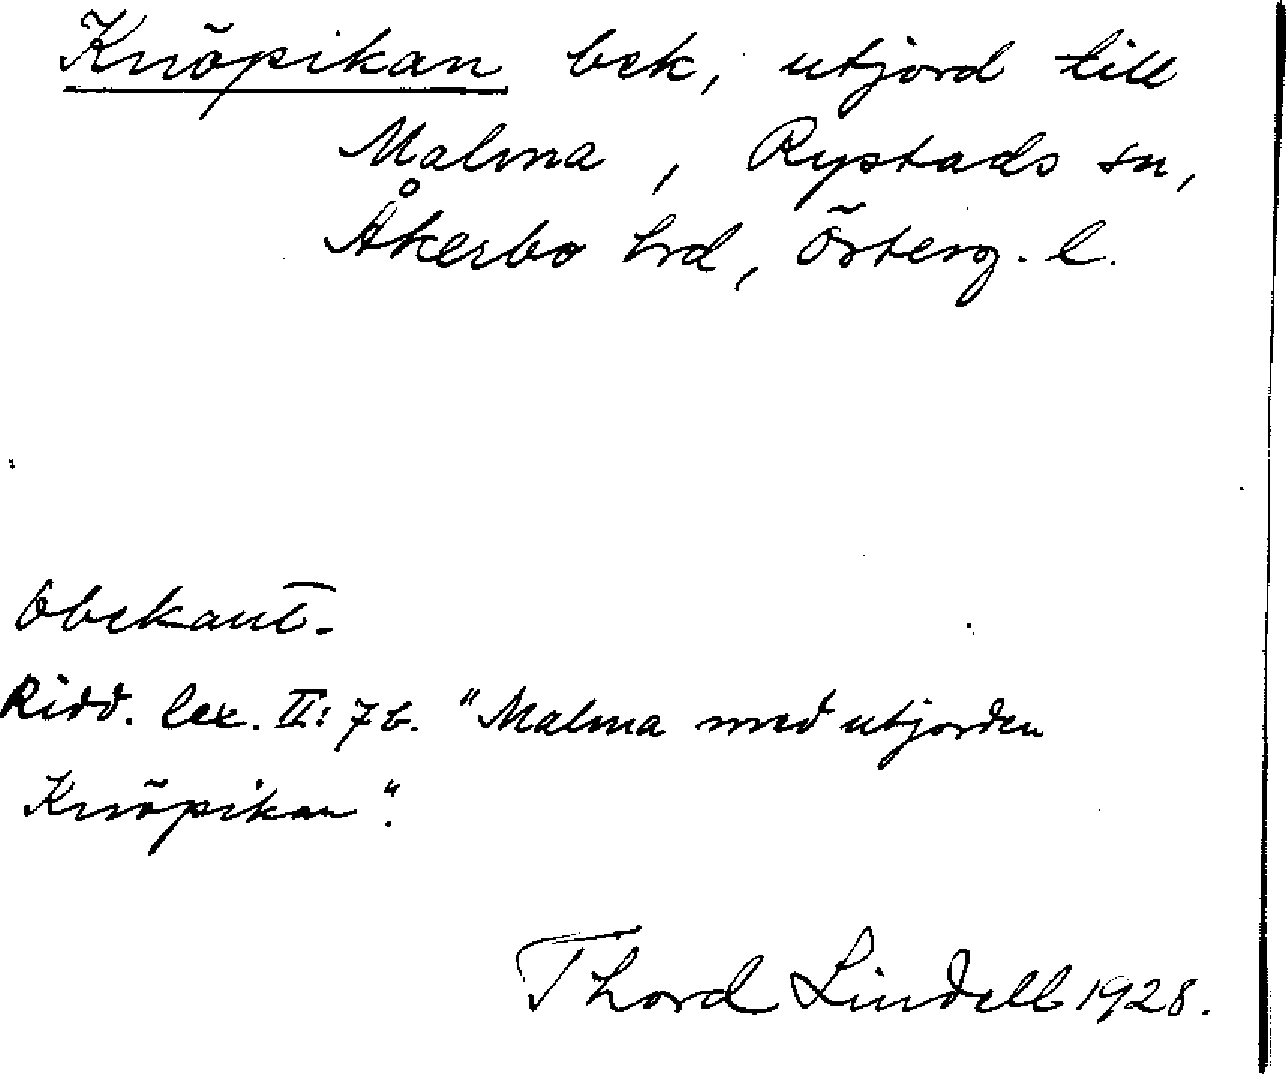 Knöpikan bek, utjord till
Malma, Rystads sn,
Åkerbo hrd, Österg. l.
Obekant.
Ridd. lex. II: 76. "Malma med utjorden
Knöpikan".
Thord Lindell 1928.